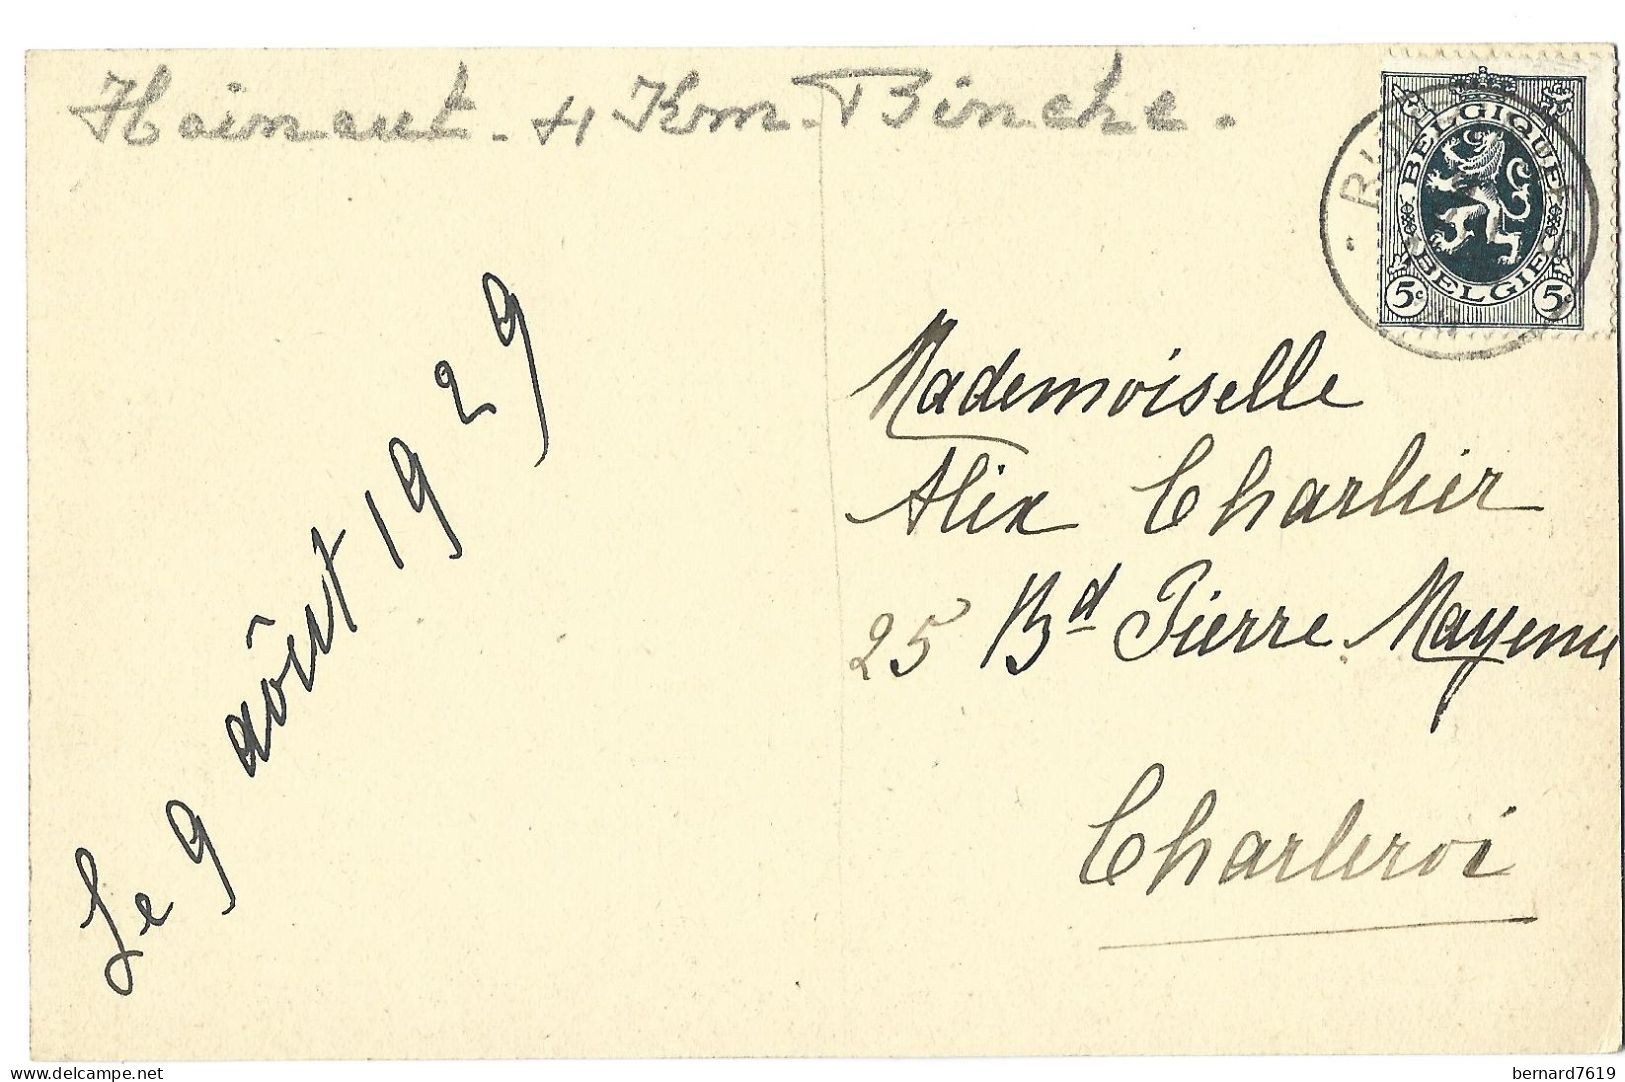 Hainaut - 4 Km - Binche.
BELGIQUE
BELGIE
5c 5c
Le 9 aôut 1929
Mademoiselle
Alix Charlier
25 Bd Pierre Mayence
Charleroi
delcampe.net
bernard7619